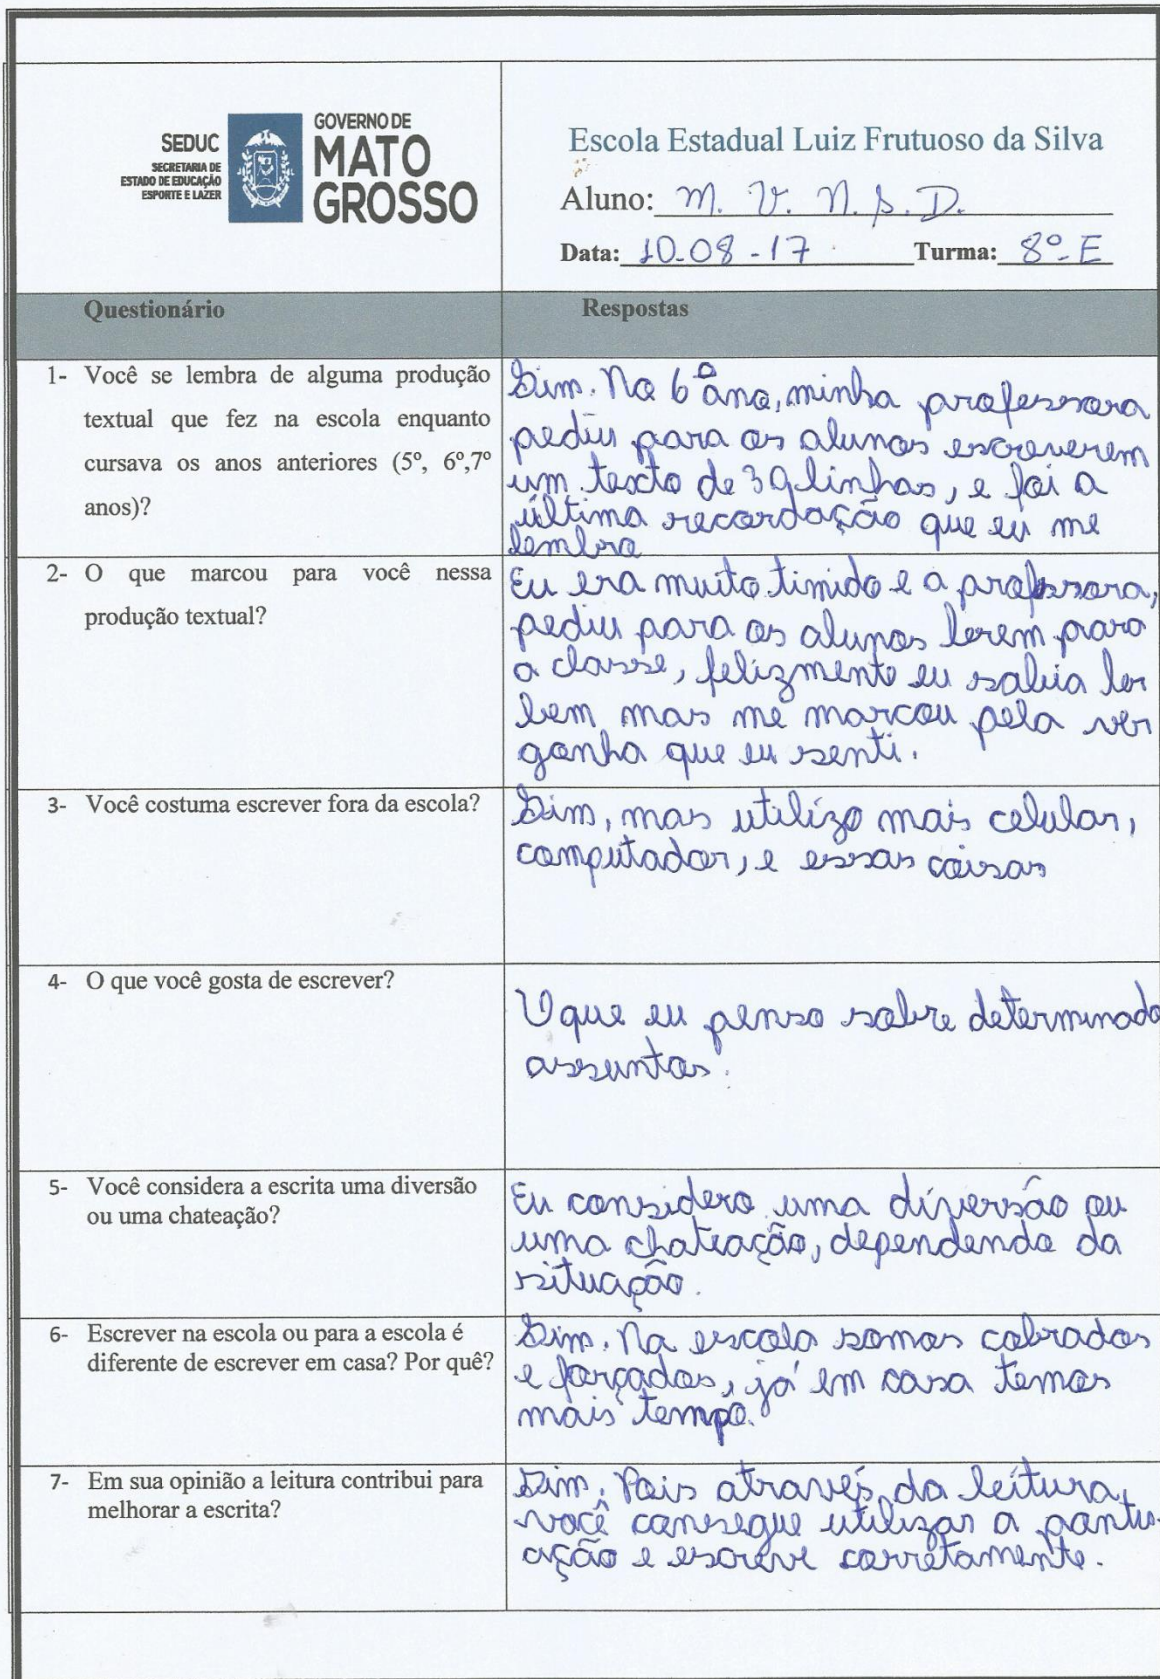 SEDUC
SECRETARIA DE
ESTADO DE EDUCAÇÃO
ESPORTE E LAZER
GOVERNO DE
MATO
GROSSO
Escola Estadual Luiz Frutuoso da Silva
Aluno: M. V. N. S. D.
Data: 10-08-17 Turma: 8º E
Questionário
Respostas
1- Você se lembra de alguma produção
textual que fez na escola enquanto
cursava os anos anteriores (5º, 6º,7º
anos)?
Sim. No 6º ano, minha professora
pediu para os alunos escreverem
um texto de 39 linhas, e foi a
última recordação que eu me
lembro
2- O que marcou para você nessa
produção textual?
Eu era muito timido e a professora,
pediu para os alunos lerem para
a classe, felizmente eu sabia ler
bem mas me marcou pela ver
gonha que eu senti.
3- Você costuma escrever fora da escola?
Sim, mas utilizo mais celular,
computador, e essas coisas
4- O que você gosta de escrever?
O que eu penso sobre determinado
assuntos.
5- Você considera a escrita uma diversão
ou uma chateação?
Eu considero uma diversão ou
uma chateação, dependendo da
situação.
6- Escrever na escola ou para a escola é
diferente de escrever em casa? Por quê?
Sim. Na escola somos cobrados
e forçados, já em casa temos
mais tempo.
7- Em sua opinião a leitura contribui para
melhorar a escrita?
Sim. Pois através da leitura,
você consegue utilizar a pontu-
ação e escreve corretamente.